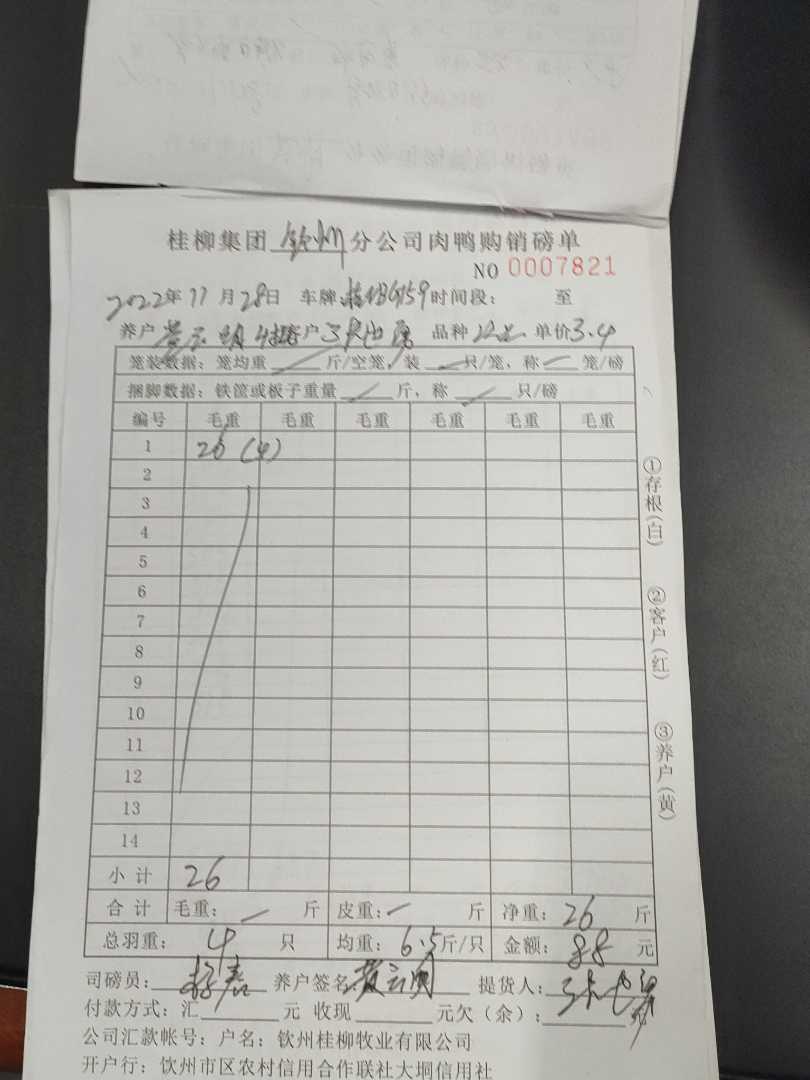 桂柳集团 钦州 分公司肉鸭购销磅单
NO 0007821
2022年11月28日 车牌: 时间段: 至
养户 客户 品种 单价3.4
笼装数据: 笼均重 斤/空笼, 装 只/笼, 称 笼/磅
捆脚数据: 铁筐或板子重量 斤, 称 只/磅
编号 毛重 毛重 毛重 毛重 毛重 毛重
1 26 (4)
2
3
4
5
6
7
8
9
10
11
12
13
14
小计 26
合计 毛重: 斤 皮重: 斤 净重: 26 斤
总羽重: 4 只 均重: 6.5斤/只 金额: 88 元
司磅员: 养户签名: 提货人:
付款方式: 汇 元 收现 元欠(余):
公司汇款帐号: 户名: 钦州桂柳牧业有限公司
开户行: 饮州市区农村信用合作联社大垌信用社
①存根(白)
②客户(红)
③养户(黄)